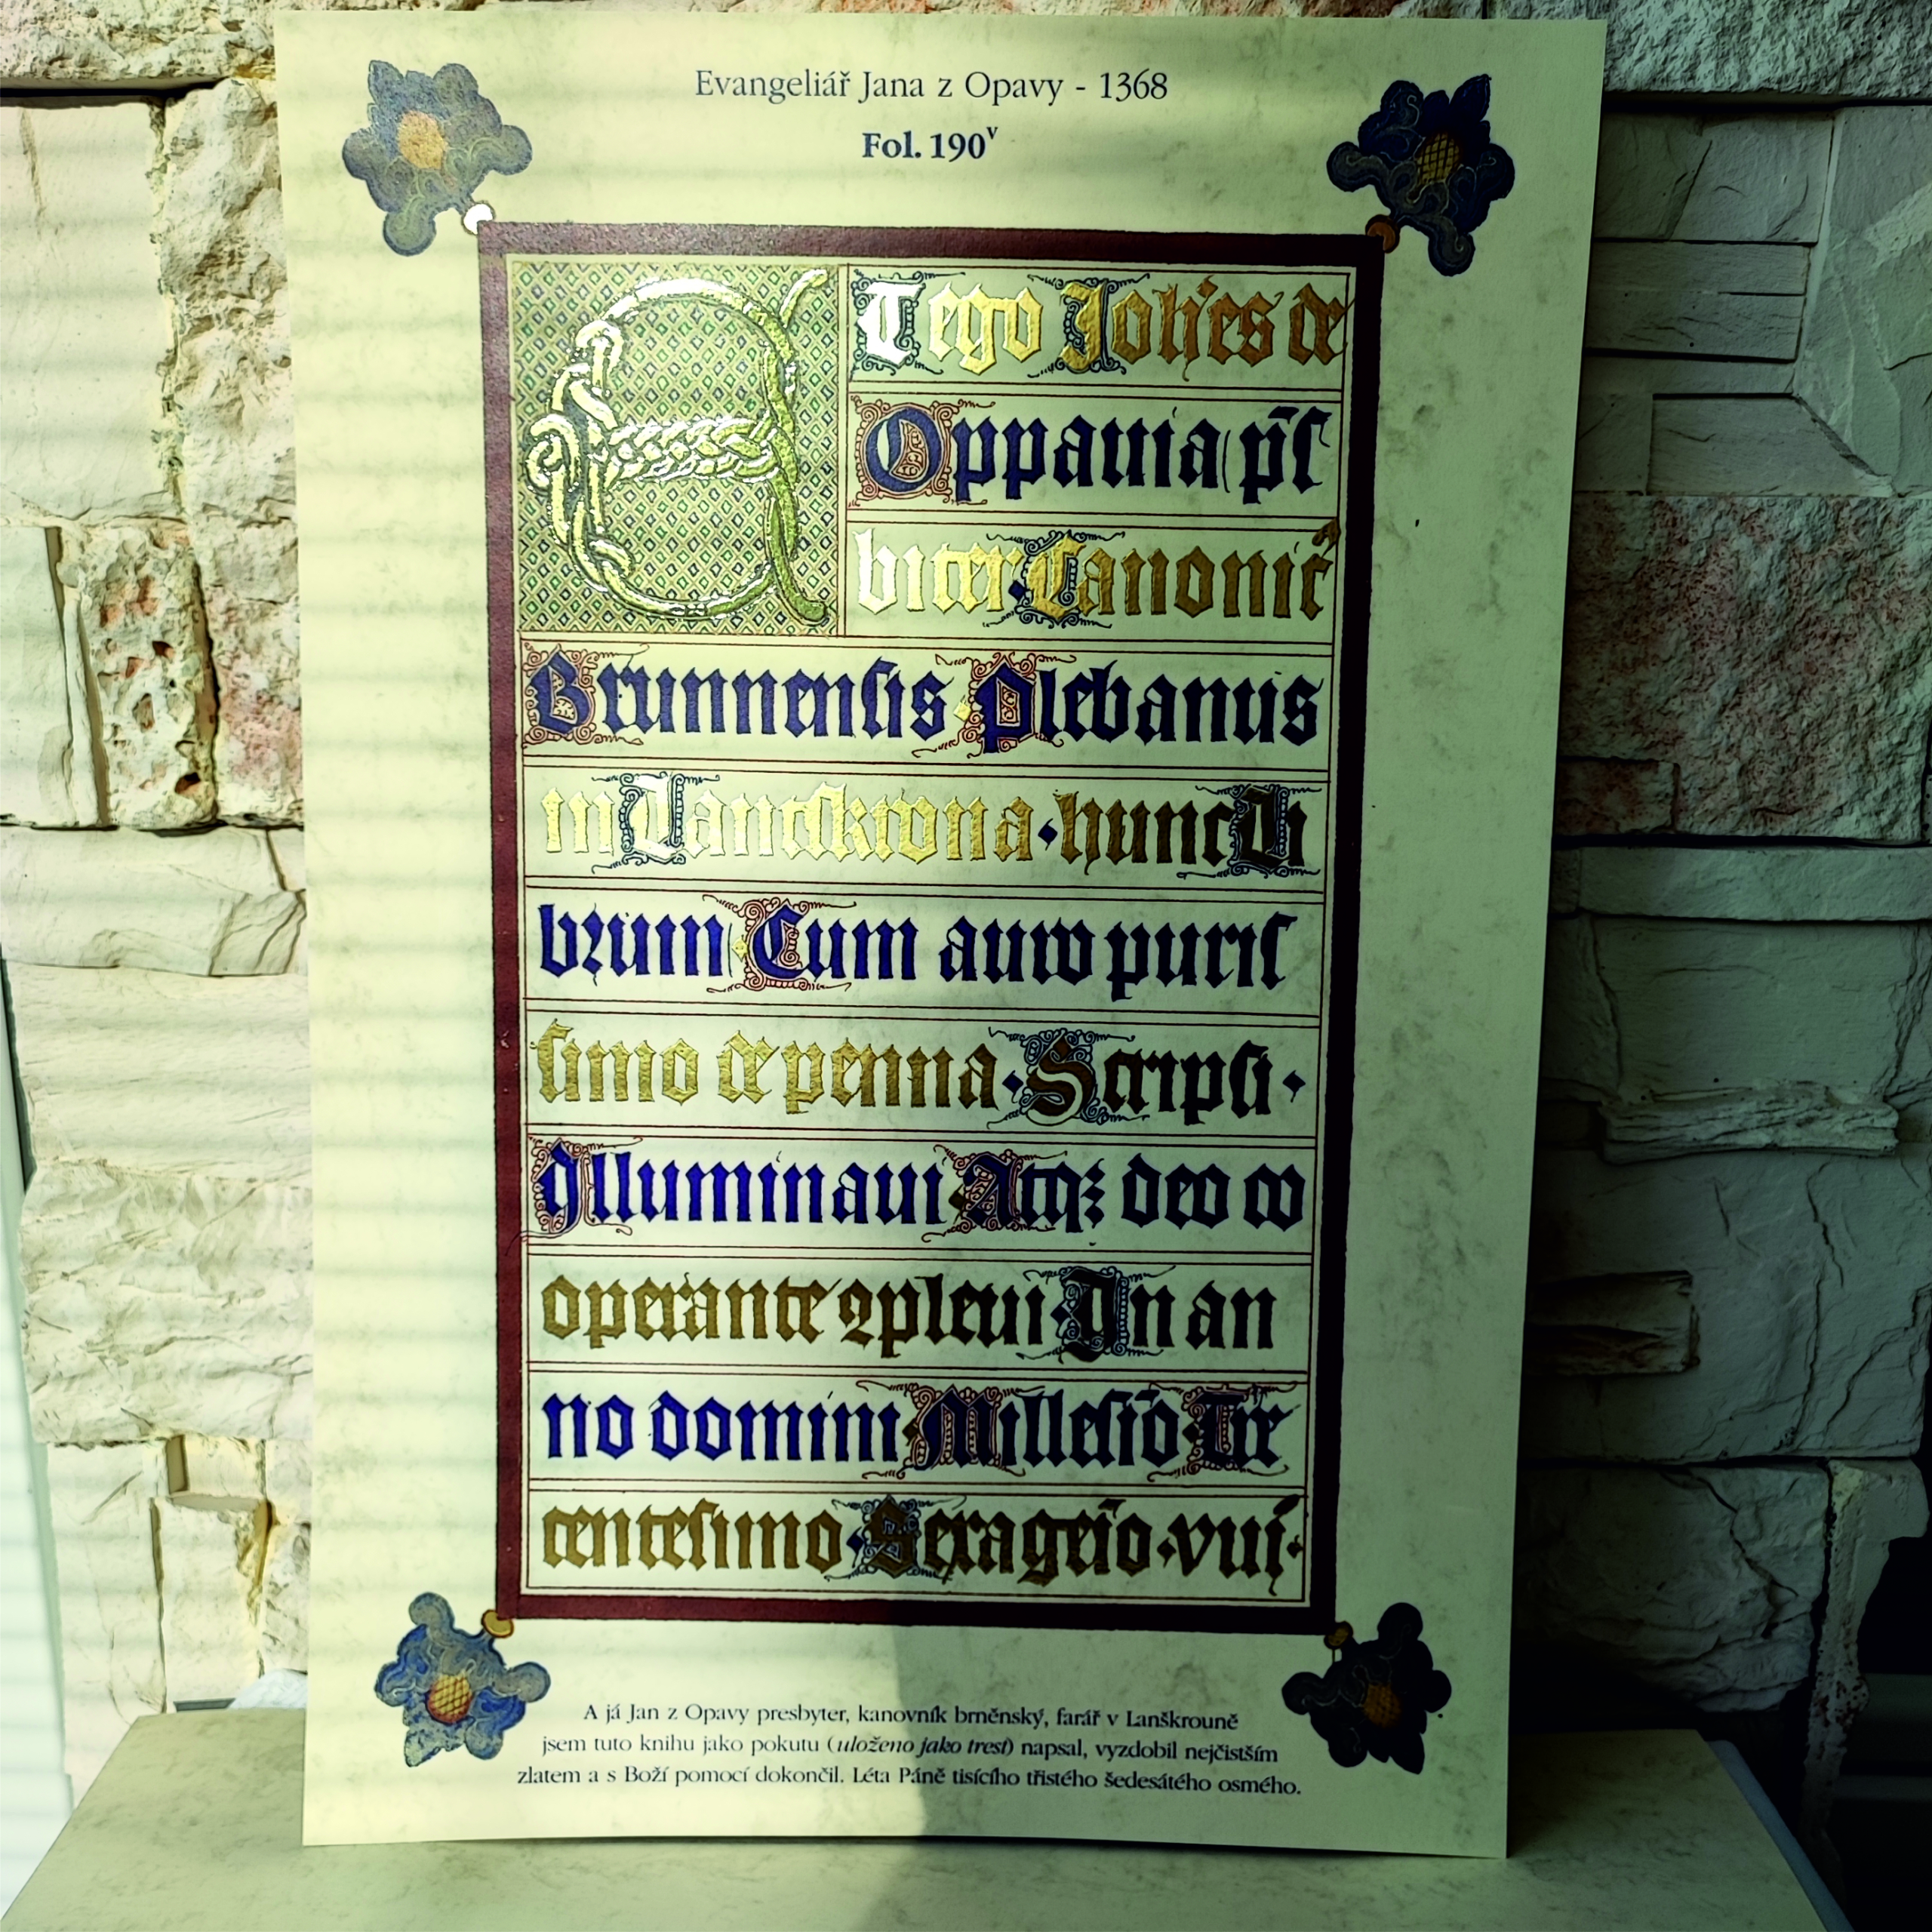 Evangeliář Jana z Opavy - 1368
Fol. 190v
ET ego Joh̄es de
Oppauia pr̄s
biter Canonic̄
Brunnensis Plebanus
in Lanczkrona · hunc Li
brum Cum auro puris
simo de penna · Scripsi ·
Illuminaui Atqꝫ deo co
operante ꝯpleui · In an
no domini Millesīo Tre
centesimo · Sexageīo · viii ·
A já Jan z Opavy presbyter, kanovník brněnský, farář v Lanškrouně
jsem tuto knihu jako pokutu (uloženo jako trest) napsal, vyzdobil nejčistším
zlatem a s Boží pomocí dokončil. Léta Páně tisícího třistého šedesátého osmého.